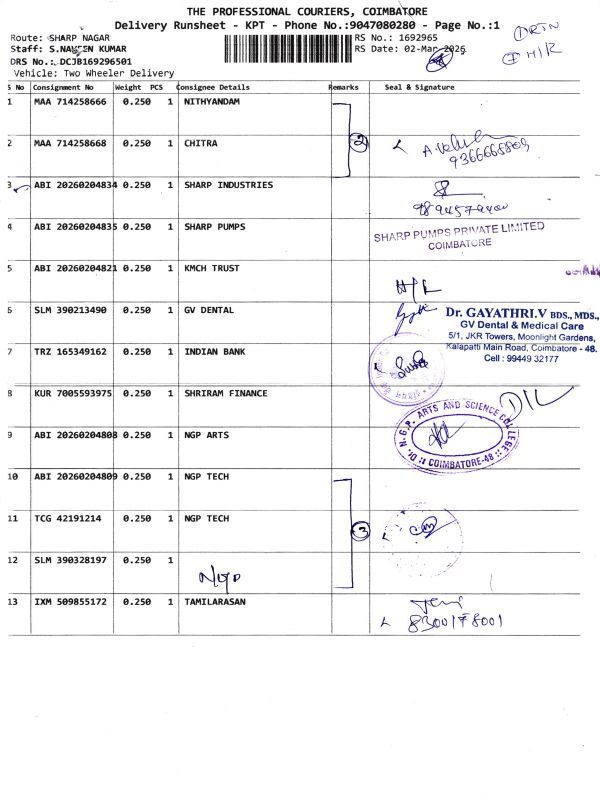 THE PROFESSIONAL COURIERS, COIMBATORE
Delivery Runsheet - KPT - Phone No.:9047080280 - Page No.:1
Route: SHARP NAGAR
RS No.: 1692965
Staff: S.NAVEEN KUMAR
RS Date: 02-Mar-2026
DRS No.: DCJB169296501
Vehicle: Two Wheeler Delivery
DRTN
H/R
S No Consignment No Weight PCS Consignee Details Remarks Seal & Signature
1 MAA 714258666 0.250 1 NITHYANDAM
2 MAA 714258668 0.250 1 CHITRA 2
9366668809
3 ABI 20260204834 0.250 1 SHARP INDUSTRIES
4 ABI 20260204835 0.250 1 SHARP PUMPS
SHARP PUMPS PRIVATE LIMITED
COIMBATORE
5 ABI 20260204821 0.250 1 KMCH TRUST
H/R
6 SLM 390213490 0.250 1 GV DENTAL
Dr. GAYATHRI.V BDS., MDS.,
GV Dental & Medical Care
5/1, JKR Towers, Moonlight Gardens,
Kalapatti Main Road, Coimbatore - 48.
Cell : 99449 32177
7 TRZ 165349162 0.250 1 INDIAN BANK
8 KUR 7005593975 0.250 1 SHRIRAM FINANCE
D/L
9 ABI 20260204808 0.250 1 NGP ARTS
Dr. N.G.P. ARTS AND SCIENCE COLLEGE
COIMBATORE-48
10 ABI 20260204809 0.250 1 NGP TECH
11 TCG 42191214 0.250 1 NGP TECH 3
12 SLM 390328197 0.250 1
NGP
13 IXM 509855172 0.250 1 TAMILARASAN
8300178001